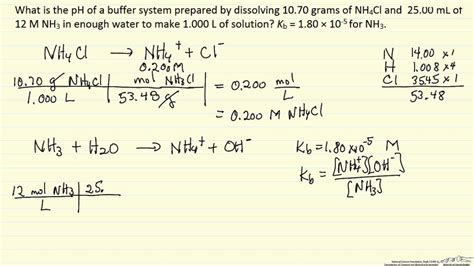 What is the pH of a buffer system prepared by dissolving 10.70 grams of NH4Cl and 25.00 mL of
12 M NH3 in enough water to make 1.000 L of solution? Kb = 1.80 × 10-5 for NH3.
NH4Cl → NH4+ + Cl-
0.200M
N 14.00 x1
H 1.008 x4
Cl 35.45 x1
53.48
10.70 g NH4Cl | mol NH3Cl = 0.200 mol
1.000 L | 53.48 g L
= 0.200 M NH4Cl
NH3 + H2O → NH4+ + OH-
Kb = 1.80 x10-5 M
Kb = [NH4+][OH-]
[NH3]
12 mol NH3 | 25.
L